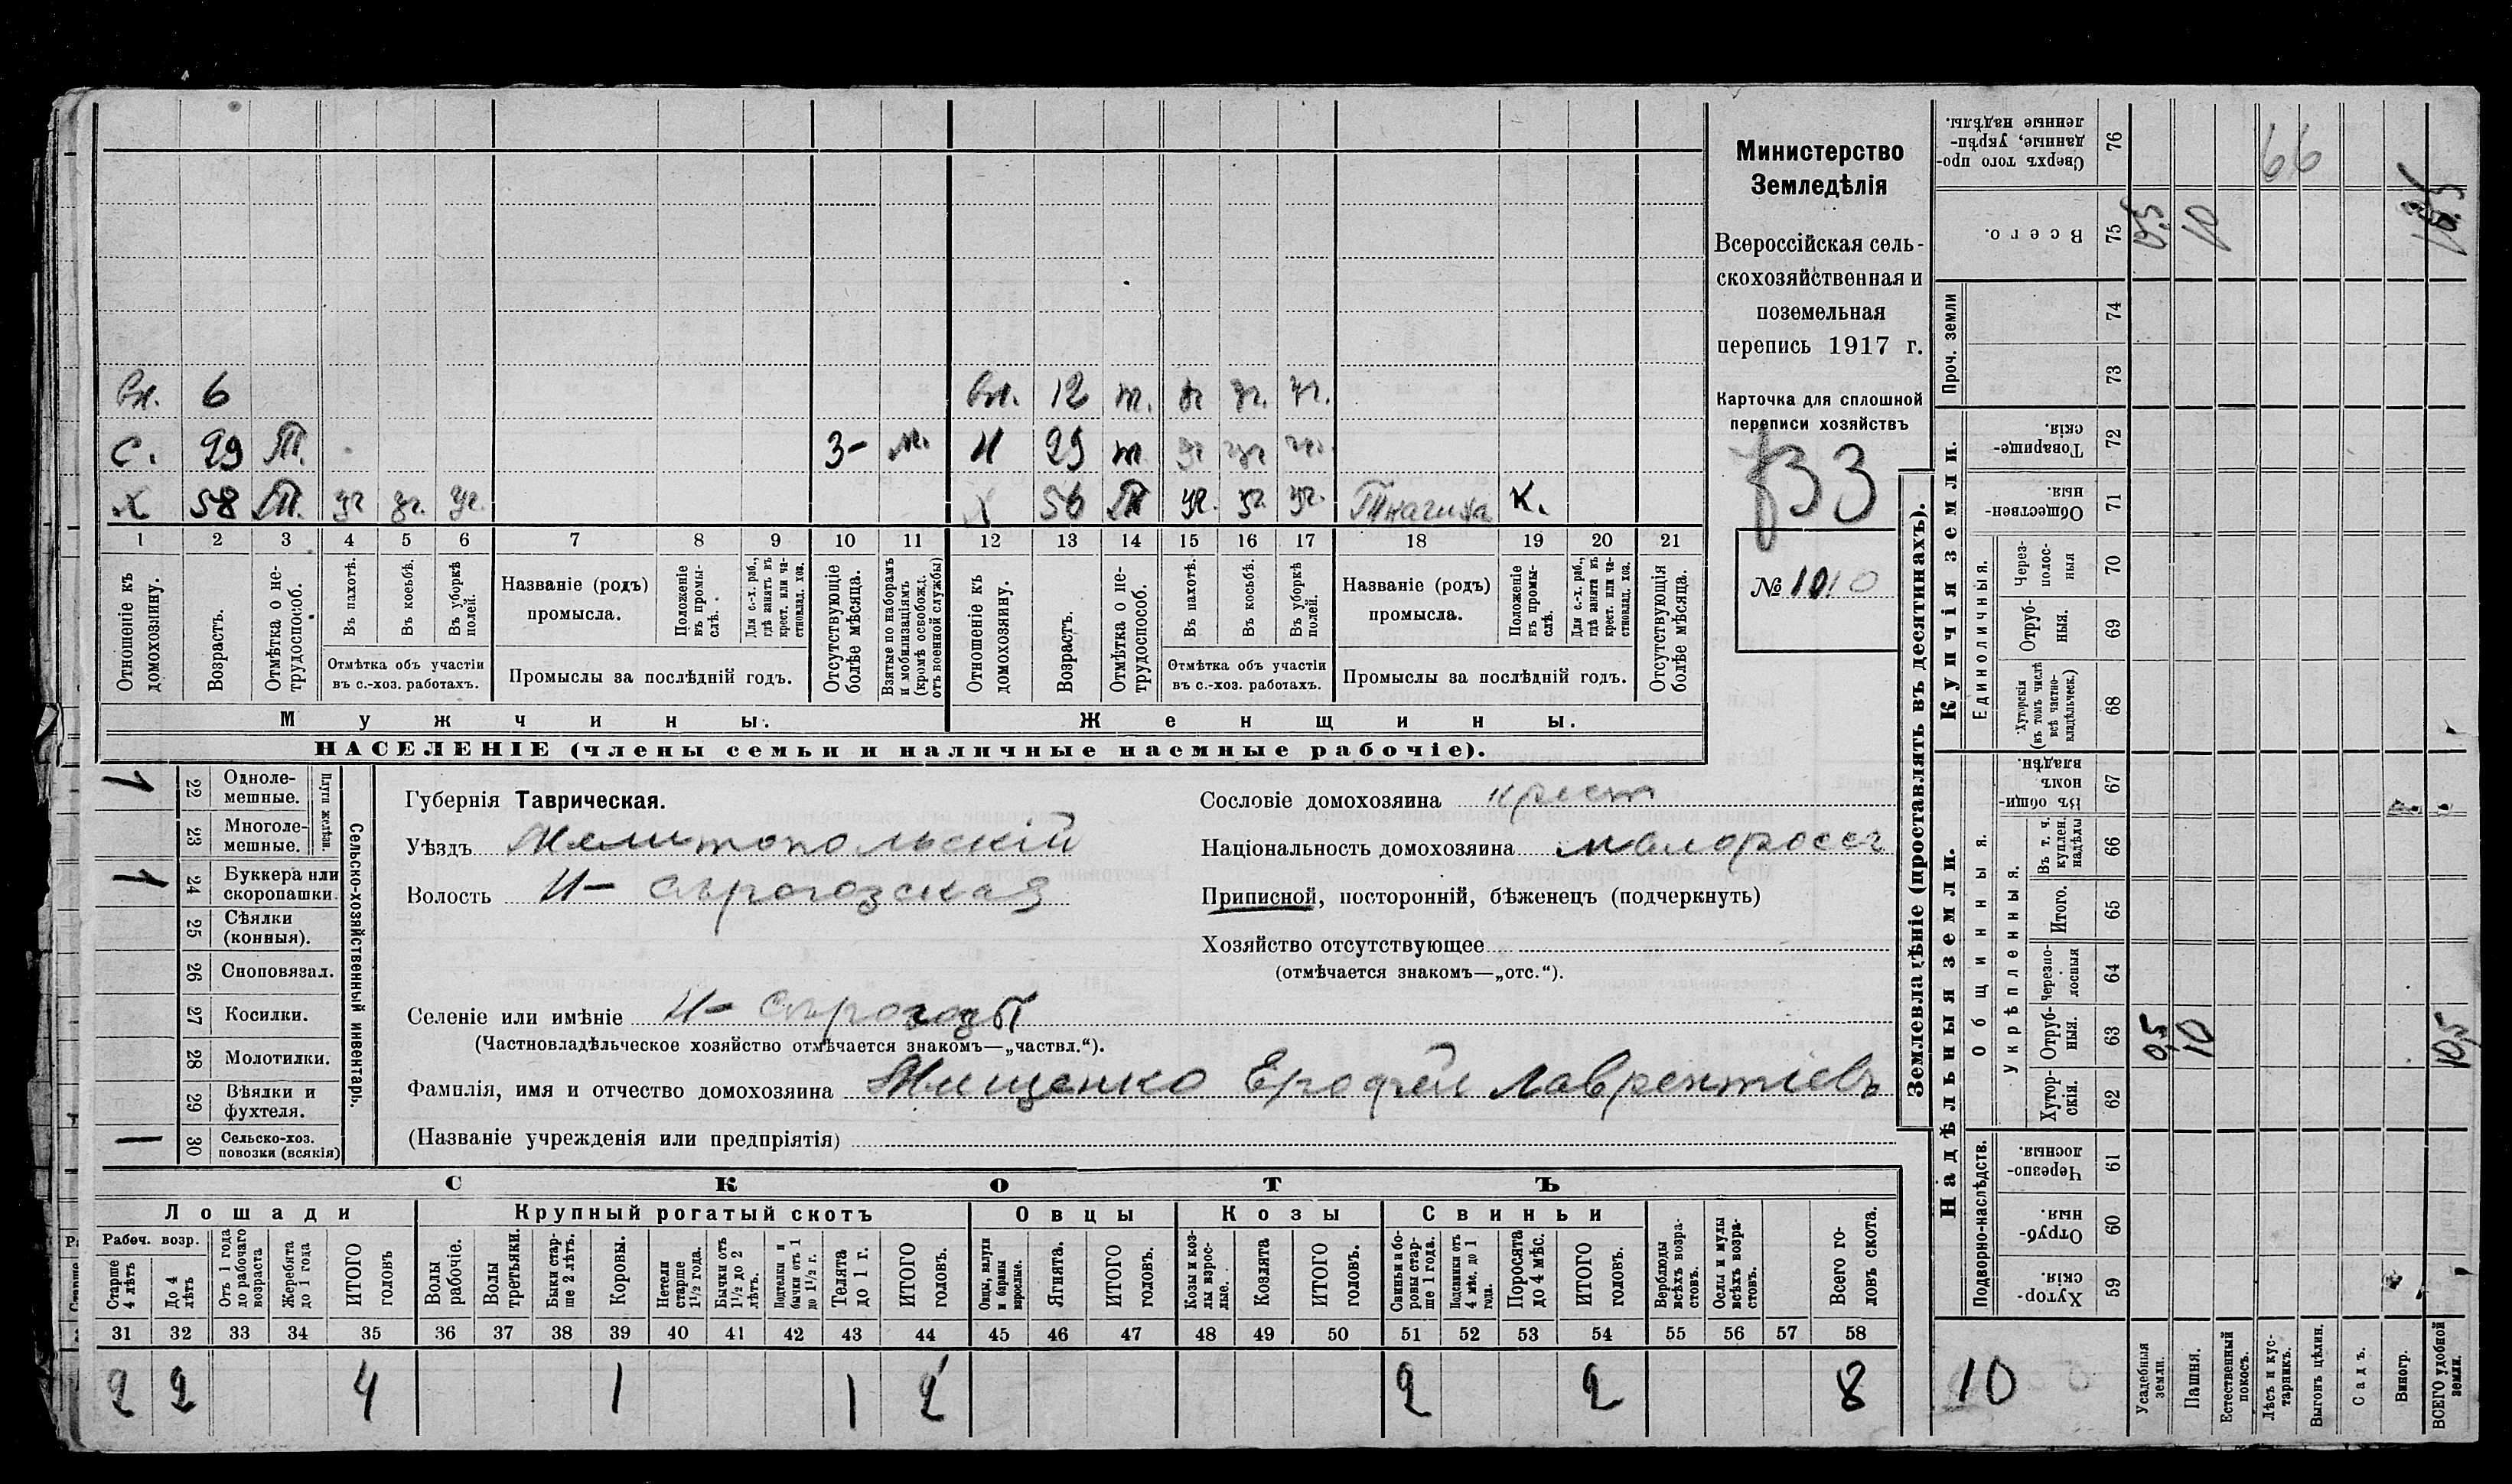 Министерство
Земледѣлія
Всероссійская сель-
скохозяйственная и
поземельная
перепись 1917 г.
Карточка для сплошной
переписи хозяйствъ
№ 1010
вн. 6 вн. 12 т. уч. уч. уч.
с. 29 П. 3– м. н 29 т. уч уч уч.
х 58 П. уч уч. уч. х 56 П уч. уч. уч. к.
1 2 3 4 5 6 7 8 9 10 11 12 13 14 15 16 17 18 19 20 21
Отношеніе къ домохозяину.
Возрастъ.
Отмѣтка о не-трудоспособ.
Въ пахотѣ.
Въ косьбѣ.
Въ уборкѣ полей.
Отмѣтка объ участіи
въ с.-хоз. работахъ.
Названіе (родъ)
промысла.
Положеніе въ промы-слѣ.
Для с.-х. раб., гдѣ занятъ въ крест. или ча-стновлад. хоз.
Промыслы за послѣдній годъ.
Отсутствующіе болѣе мѣсяца.
Взятые по наборамъ и мобилизаціямъ (кромѣ освобожд. отъ военной службы)
Отношеніе къ домохозяину.
Возрастъ.
Отмѣтка о не-трудоспособ.
Въ пахотѣ.
Въ косьбѣ.
Въ уборкѣ полей.
Отмѣтка объ участіи
въ с.-хоз. работахъ.
Названіе (родъ)
промысла.
Положеніе въ промы-слѣ.
Для с.-х. раб., гдѣ занятъ въ крест. или ча-стновлад. хоз.
Промыслы за послѣдній годъ.
Отсутствующія болѣе мѣсяца.
Мужчины. Женщины.
НАСЕЛЕНІЕ (члены семьи и наличные наемные рабочіе).
Сельско-хозяйственный инвентарь.
Плуги желѣзн.
1 22 Одноле-мешные.
23 Многоле-мешные.
1 24 Буккера или скоропашки.
25 Сѣялки (конныя).
26 Сноповязал.
27 Косилки.
28 Молотилки.
29 Вѣялки и фухтеля.
1 30 Сельско-хоз. повозки (всякія)
Губернія Таврическая.
Уѣздъ Мелитопольскій
Волость Н– Сѣрогозская
Селеніе или имѣніе Н– Сѣрогозы
(Частновладѣльческое хозяйство отмѣчается знакомъ—„частвл.“).
Фамилія, имя и отчество домохозяина Мищенко Ерофей Лаврентіевъ
(Названіе учрежденія или предпріятія)
Сословіе домохозяина крест
Національность домохозяина малоросс
Приписной, посторонній, бѣженецъ (подчеркнуть)
Хозяйство отсутствующее
(отмѣчается знакомъ—„отс.“).
СКОТЪ
Лошади Крупный рогатый скотъ Овцы Козы Свиньи
Рабоч. возр.
Старше 4 лѣтъ
До 4 лѣтъ
Отъ 1 года до рабочаго возраста
Жеребята до 1 года
ИТОГО головъ
Волы рабочіе.
Волы третьяки.
Быки стар-ше 2 лѣтъ.
Коровы.
Нетели старше 1½ года.
Бычки отъ 1½ до 2 лѣтъ.
Подтелки и бычки отъ 1 до 1½ г.
Телята до 1 г.
ИТОГО головъ.
Овцы, валухи и бараны взрослые.
Ягнята.
ИТОГО головъ.
Козы и коз-лы взрос-лые.
Козлята
ИТОГО головъ.
Свиньи и бо-ровы стар-ше 1 года.
Подсвинки отъ 4 мѣс. до 1 года.
Поросята до 4 мѣс.
ИТОГО головъ.
Верблюды всѣхъ возра-стовъ.
Ослы и мулы всѣхъ возра-стовъ.
Всего го-ловъ скота.
31 32 33 34 35 36 37 38 39 40 41 42 43 44 45 46 47 48 49 50 51 52 53 54 55 56 57 58
2 2 4 1 1 2 2 2 8
Землевладѣніе (проставлять въ десятинахъ).
Надѣльныя земли. Купчія земли. Проч. земли
Подворно-наслѣдств.
Общинныя.
Укрѣпленныя.
Единоличныя.
59 Хутор-скія.
60 Отруб-ныя.
61 Черезпо-лосныя.
62 Хутор-скія.
63 Отруб-ныя. 0,5 10 10,5
64 Черезпо-лосныя
65 Итого.
66 Въ т. ч. куплен. надѣлы
67 Въ общин-номъ владѣн.
68 Хуторскія (въ томъ числѣ всѣ частно-владѣльческ.)
69 Отруб-ныя.
70 Через-полос-ныя
71 Обществен-ныя.
72 Товарище-скія.
73
74
75 Всего. 0,5 10 10,5
76 Сверхъ того про-данные, укрѣп-ленные надѣлы. 66
10
Усадебныя земли.
Пашня.
Естественный покосъ.
Лѣсъ и кус-тарникъ.
Выгонъ цѣлин.
Садъ.
Виногр.
ВСЕГО удобной земли.